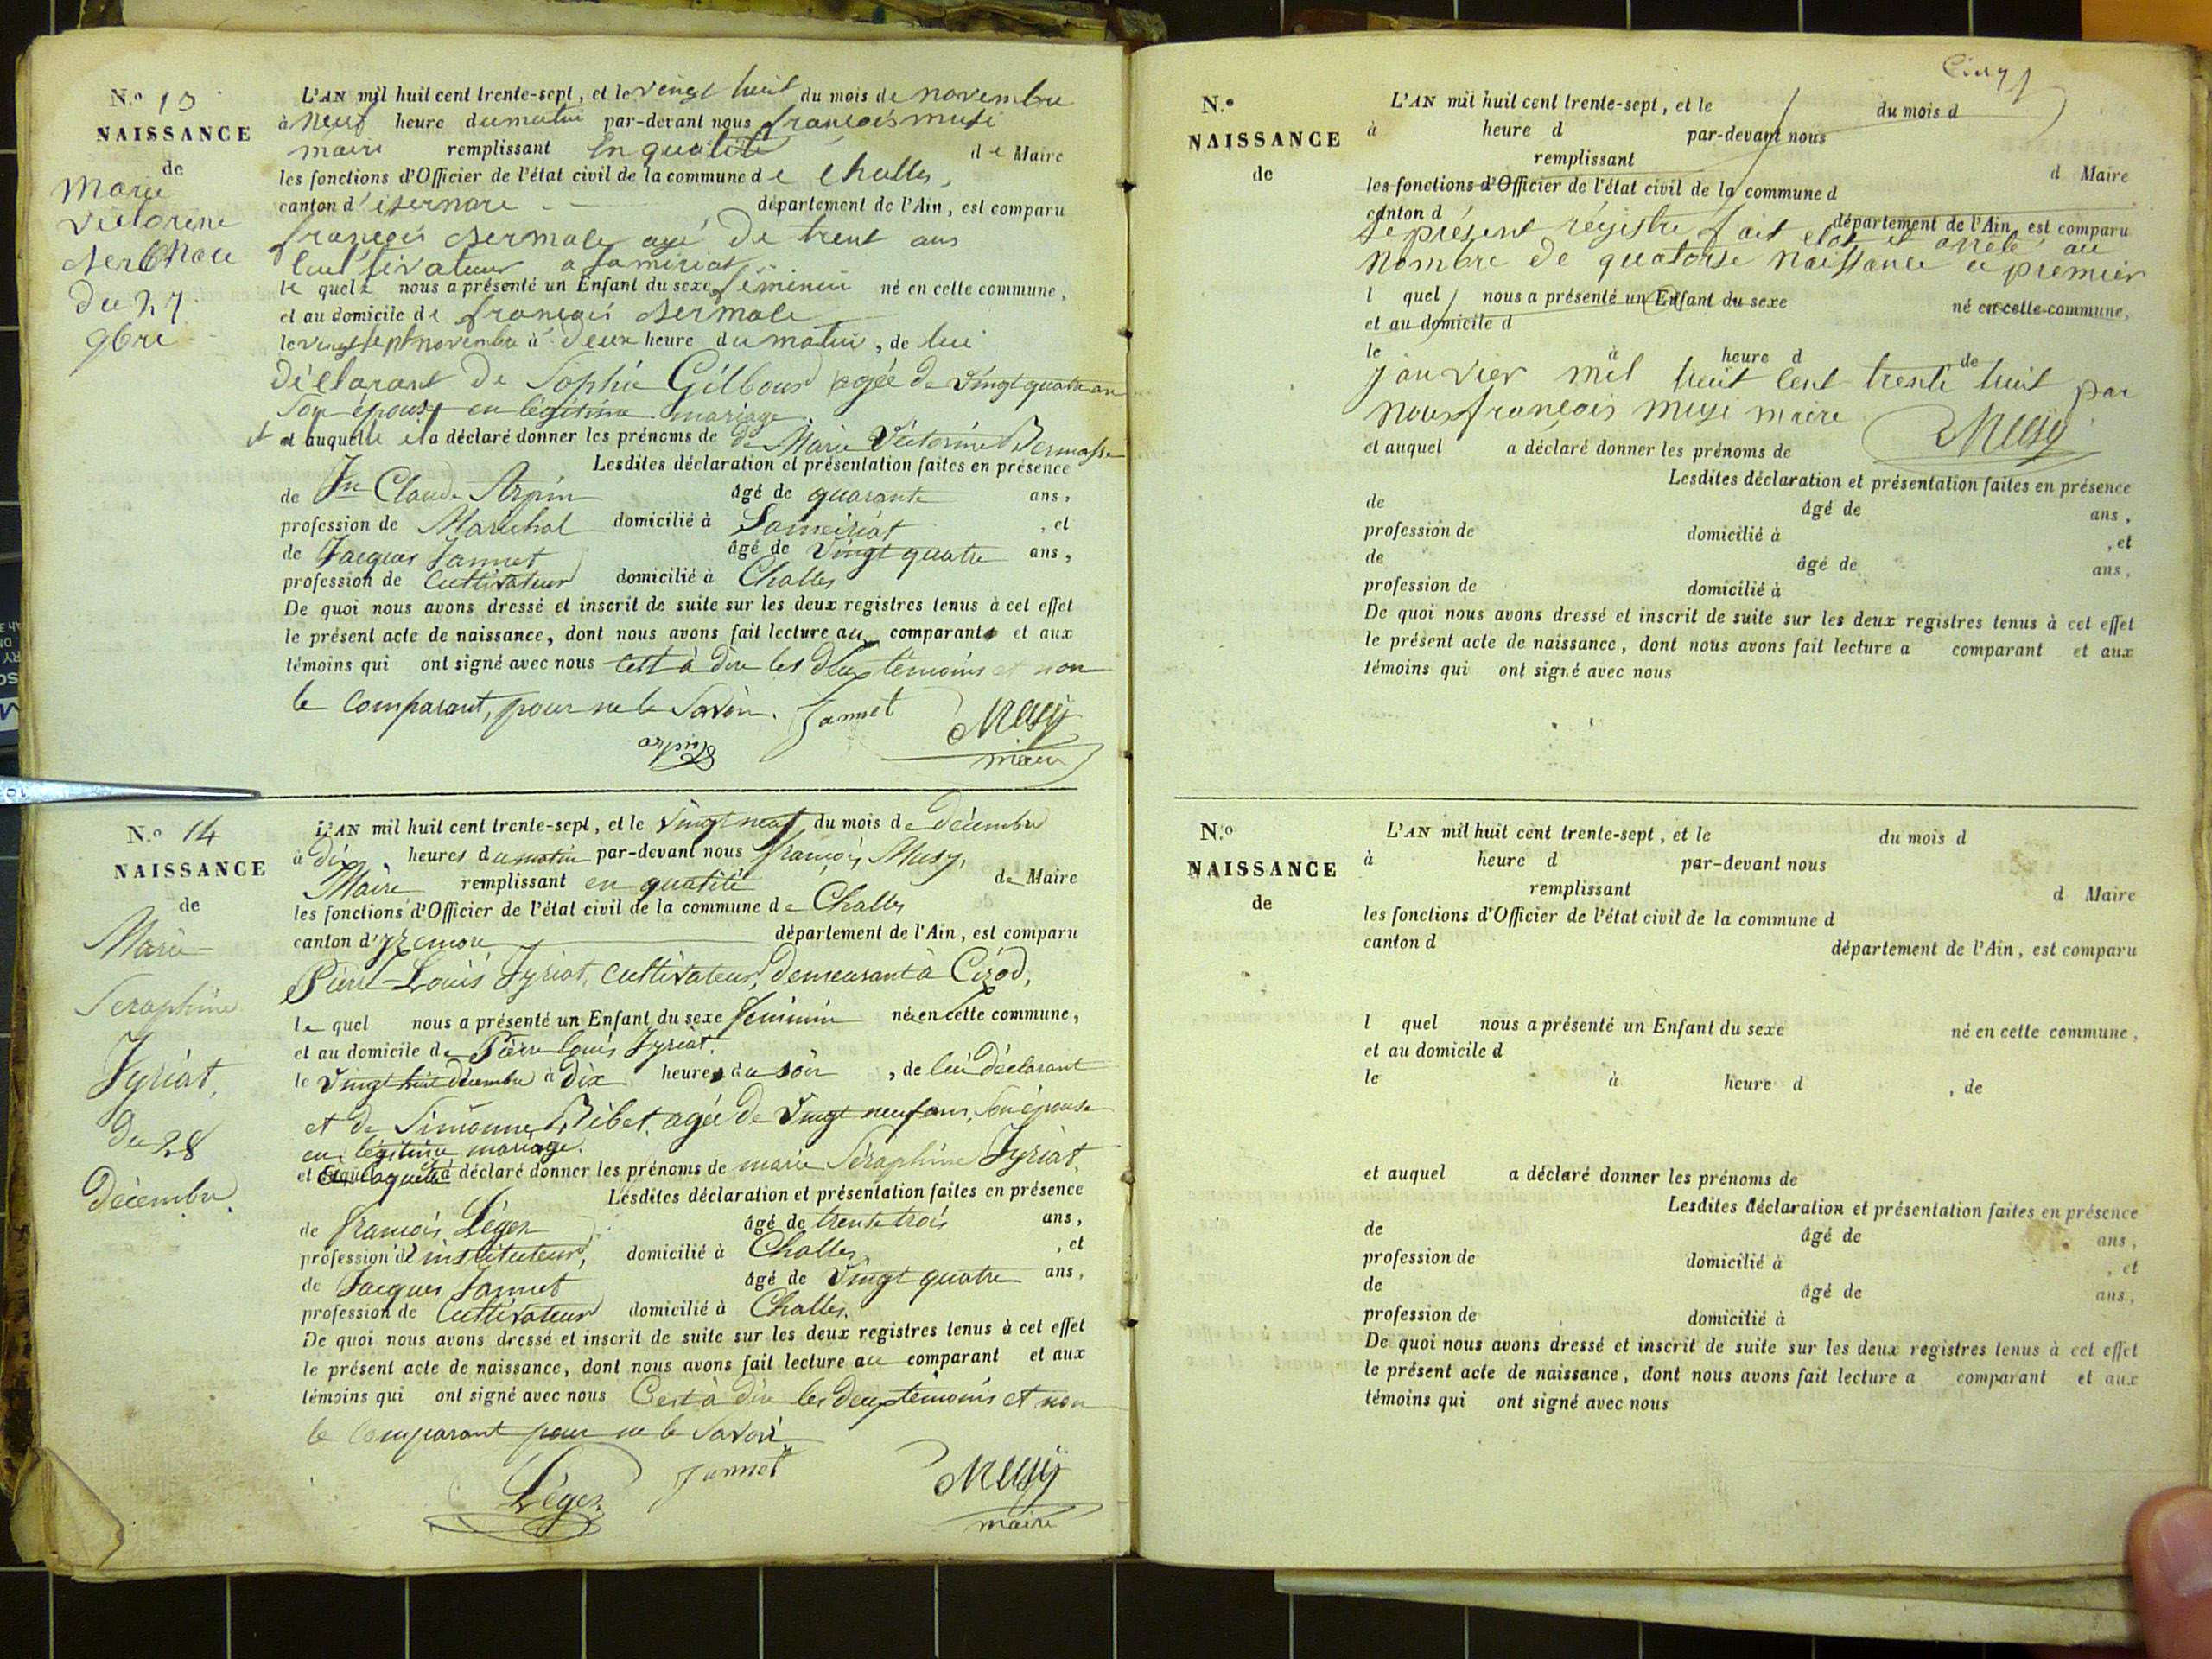 N.º 13
NAISSANCE
de
Marie
Victorine
du 27
9bre
L'AN mil huit cent trente-sept, et le vingt huit du mois de novembre
à neuf heure du matin par-devant nous françois musi
maire remplissant en qualité de Maire
les fonctions d'Officier de l'état civil de la commune de Challes,
canton d'isernore département de l'Ain, est comparu
françois dermale agé de trent ans
cultivateur a samiriat
le quel nous a présenté un Enfant du sexe féminin né en cette commune,
et au domicile de françois dermale
le vingt sept novembre à deux heure du matin, de lui
déclarant de Sophie Gilbous agée de vingt quatre ans
son épouse en légitime mariage
et auquelle il a déclaré donner les prénoms de de Marie Victorine
Lesdites déclaration et présentation faites en présence
de Jn Claude Arpin âgé de quarante ans,
profession de Maréchal domicilié à Sameiriat, et
de Jacques Jannet âgé de vingt quatre ans,
profession de Cultivateur domicilié à Challes
De quoi nous avons dressé et inscrit de suite sur les deux registres tenus à cet effet
le présent acte de naissance, dont nous avons fait lecture au comparant et aux
témoins qui ont signé avec nous C'est à dire les deux témoins et non
le comparant, pour ne le Savoir. Jannet Musy
maire
N.º 14
NAISSANCE
de
Marie
Seraphine
Jyriat,
du 28
Décembre.
L'AN mil huit cent trente-sept, et le Vingt neuf du mois de décembre
à dix, heures du matin par-devant nous françois Musy,
Maire remplissant en qualité de Maire
les fonctions d'Officier de l'état civil de la commune de Challes
canton d'Yzernore département de l'Ain, est comparu
Pierre-Louis Jyriat, cultivateur, demeurant à Cizod,
le quel nous a présenté un Enfant du sexe féminin née en cette commune,
et au domicile de Pierre louis Jyriat.
le vingt huit décembre à Dix heures du soir, de lui déclarant
et de Simonne Bibet, agée de vingt neuf ans, son épouse
en légitime mariage.
et à laquelle a déclaré donner les prénoms de marie Séraphine Jyriat,
Lesdites déclaration et présentation faites en présence
de françois Léger âgé de trente trois ans,
profession de instituteur, domicilié à Challes, et
de Jacques Jannet âgé de Vingt quatre ans,
profession de Cultivateur domicilié à Challes.
De quoi nous avons dressé et inscrit de suite sur les deux registres tenus à cet effet
le présent acte de naissance, dont nous avons fait lecture au comparant et aux
témoins qui ont signé avec nous C'est à dire les deux témoins et non
le comparant pour ne le Savoir
Léger Jannet Musy
maire
N.º
NAISSANCE
de
L'AN mil huit cent trente-sept, et le du mois d
à heure d par-devant nous
remplissant d Maire
les fonctions d'Officier de l'état civil de la commune d
canton d département de l'Ain, est comparu
Le présent régistre fait clos et arreté au
nombre de quatorse naissance ce premier
l quel nous a présenté un Enfant du sexe né en cette commune,
et au domicile d
le à heure d de
janvier mil huit cent trente huit par
nous françois musi maire Musy
et auquel a déclaré donner les prénoms de
Lesdites déclaration et présentation faites en présence
de âgé de ans,
profession de domicilié à , et
de âgé de ans,
profession de domicilié à
De quoi nous avons dressé et inscrit de suite sur les deux registres tenus à cet effet
le présent acte de naissance, dont nous avons fait lecture a comparant et aux
témoins qui ont signé avec nous
N.º
NAISSANCE
de
L'AN mil huit cent trente-sept, et le du mois d
à heure d par-devant nous
remplissant d Maire
les fonctions d'Officier de l'état civil de la commune d
canton d département de l'Ain, est comparu
l quel nous a présenté un Enfant du sexe né en cette commune,
et au domicile d
le à heure d , de
et auquel a déclaré donner les prénoms de
Lesdites déclaration et présentation faites en présence
de âgé de ans,
profession de domicilié à , et
de âgé de ans,
profession de domicilié à
De quoi nous avons dressé et inscrit de suite sur les deux registres tenus à cet effet
le présent acte de naissance, dont nous avons fait lecture a comparant et aux
témoins qui ont signé avec nous